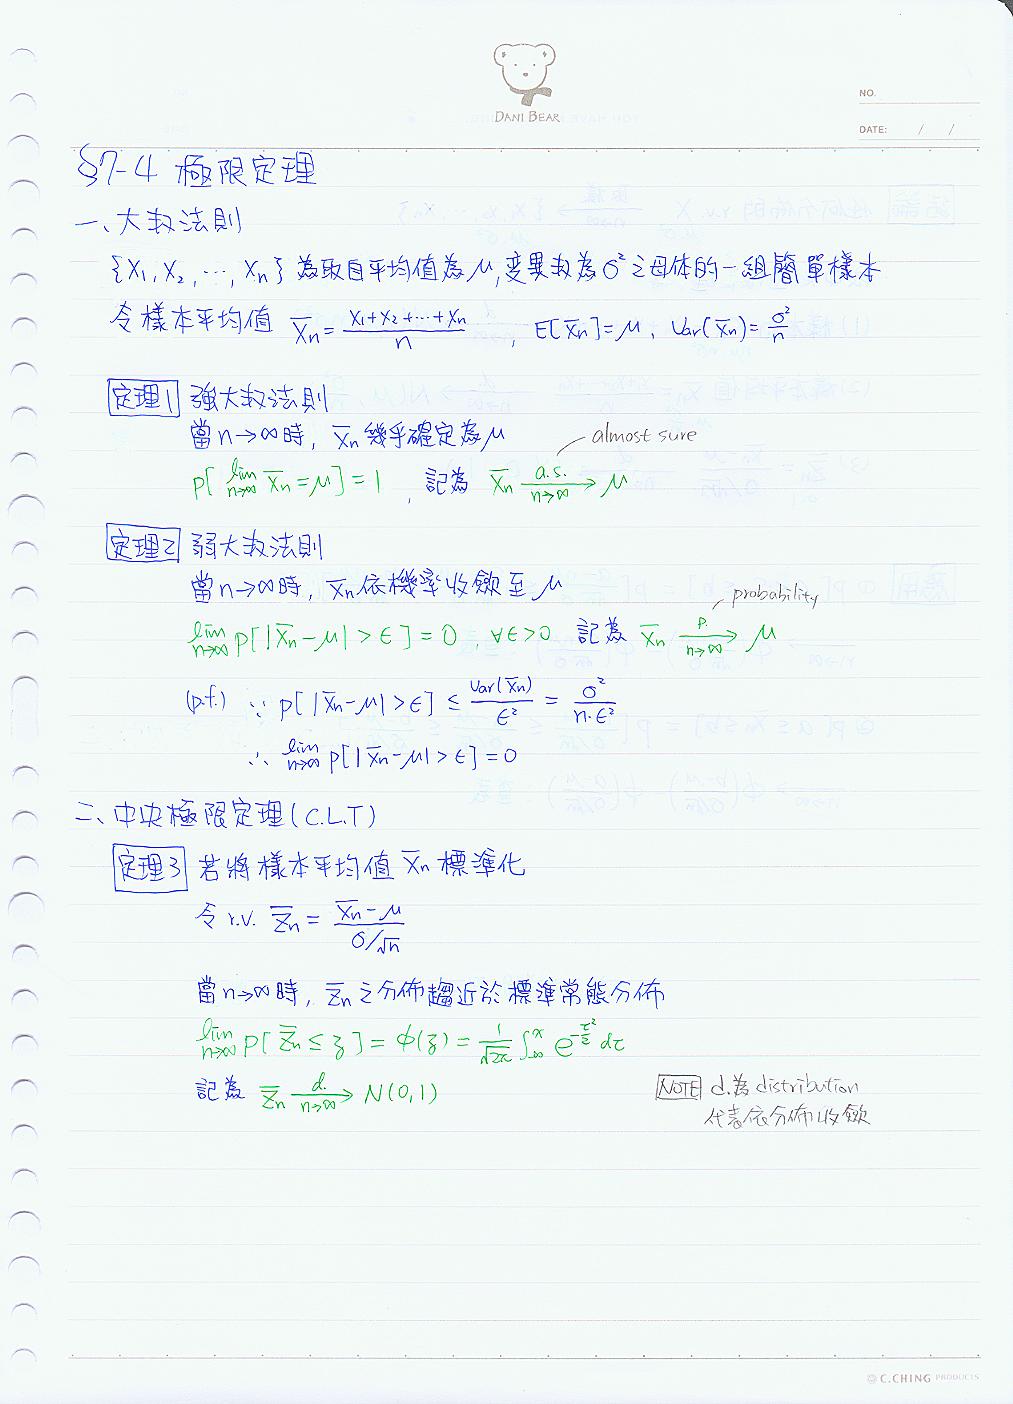 DANI BEAR
NO.
DATE: / /
§7-4 極限定理
一、大数法則
{X₁, X₂, ⋯, Xn} 為取自平均值為μ,変異数為σ²之母体的一組簡單樣本
令樣本平均值 X̄n = (X₁+X₂+⋯+Xn)/n , E[X̄n]=μ、Var(X̄n)=σ²/n
定理1 強大数法則
當n→∞時, X̄n幾乎確定為μ
almost sure
P[ lim n→∞ X̄n=μ]=1 , 記為 X̄n a.s. n→∞ → μ
定理2 弱大数法則
當n→∞時, X̄n依機率收斂至μ
probability
lim n→∞ P[|X̄n-μ|>ϵ]=0, ∀ϵ>0 記為 X̄n P. n→∞ → μ
(p.f.) ∵ P[|X̄n-μ|>ϵ] ≤ Var(X̄n)/ϵ² = σ²/n·ϵ²
∴ lim n→∞ P[|X̄n-μ|>ϵ]=0
二、中央極限定理(C.L.T)
定理3 若將樣本平均值 X̄n標準化
令r.v. Z̄n = (X̄n-μ)/(σ/√n)
當n→∞時, Z̄n之分佈趨近於標準常態分佈
lim n→∞ P[Z̄n≤z] = ϕ(z) = 1/√2π ∫₋∞ˣ e^(-τ²/2) dτ
記為 Z̄n d. n→∞ → N(0,1)
NOTE d.為distribution
代表依分佈收斂
C.CHING PRODUCTS